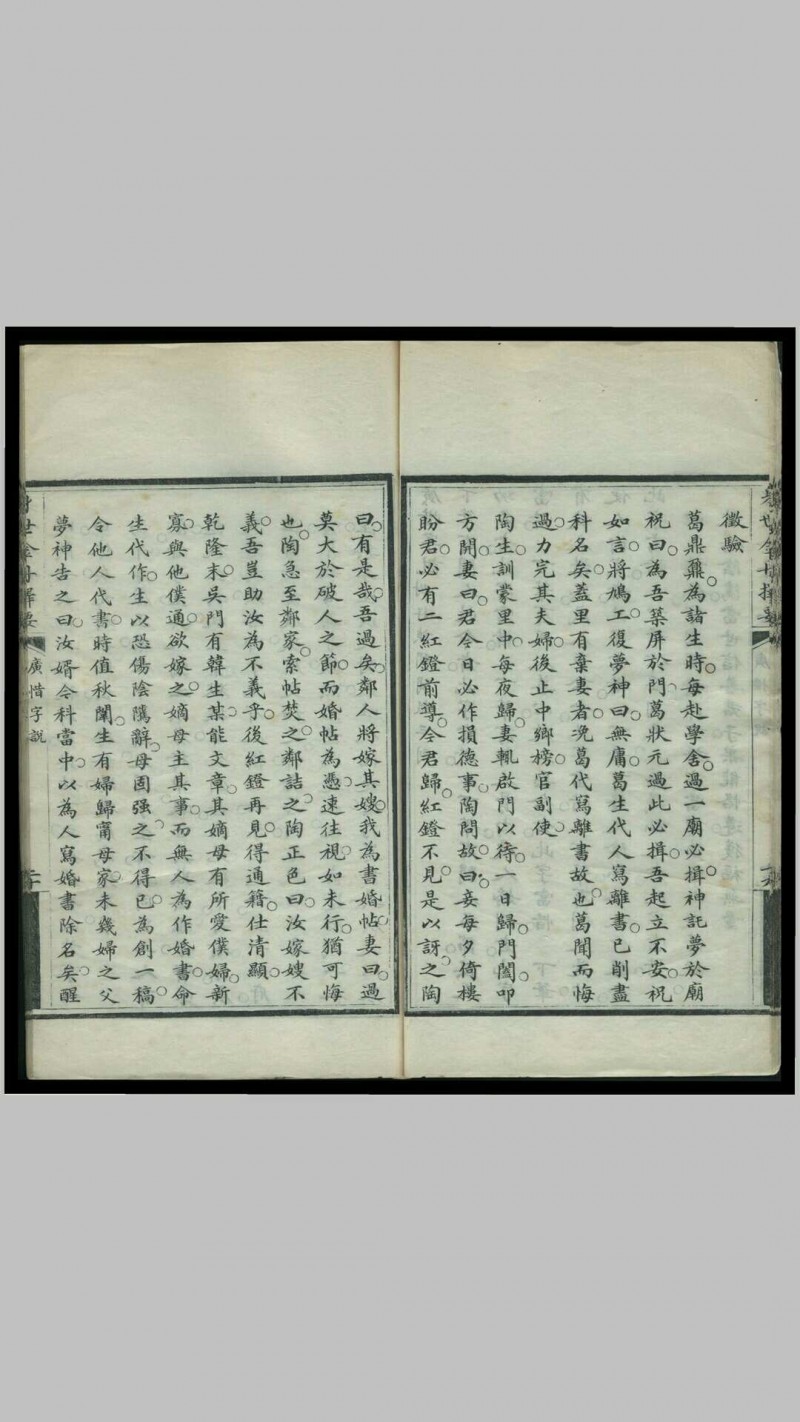 徵驗
葛鼎鼐為諸生時每赴學舍過一廟必揖神託夢於廟
祝曰為吾築屏於門葛狀元過此必揖吾起立不安祝
如言將鳩工復夢神曰無庸葛生代人寫離書已削盡
科名矣蓋里有棄妻者浼葛代寫離書故也葛聞而悔
過力完其夫婦後止中鄉榜官副使
陶生訓蒙里中每夜歸妻輒啟門以待一日歸門闔叩
方開妻曰君今日必作損德事陶問故曰妾每夕倚樓
盼君必有二紅鐙前導今君歸紅鐙不見是以訝之陶
曰有是哉吾過矣鄰人將嫁其嫂我為書婚帖妻曰過
莫大於破人之節而婚帖為憑速往視如未行猶可悔
也陶急至鄰家索帖焚之鄰詰之陶正色曰汝嫁嫂不
義吾豈助汝為不義乎後紅鐙再見得通籍仕清顯
乾隆末吳門有韓生某能文章其嫡母有所愛僕婦新
寡與他僕通欲嫁之嫡母主其事而無人為作婚書命
生代作生以恐傷陰隲辭母固强之不得已為創一稿
令他人代書時值秋闈生有婦歸甯母家未幾婦之父
夢神告之曰汝婿今科當中以為人寫婚書除名矣醒
廣惜字説